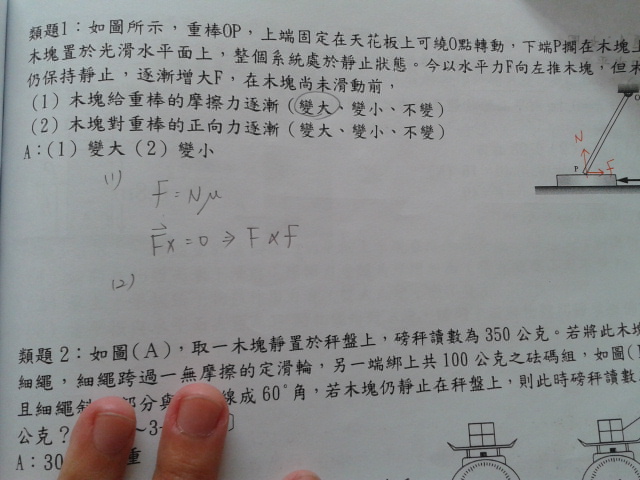 類題1：如圖所示，重棒OP，上端固定在天花板上可繞O點轉動，下端P擱在木塊上
木塊置於光滑水平面上，整個系統處於靜止狀態。今以水平力F向左推木塊，但木
仍保持靜止，逐漸增大F，在木塊尚未滑動前，
(1) 木塊給重棒的摩擦力逐漸（變大、變小、不變）
(2) 木塊對重棒的正向力逐漸（變大、變小、不變）
A：(1) 變大 (2) 變小
N
P
F
(1)
F = Nμ
Fx = 0 ⇒ F ∝ f
(2)
類題 2：如圖(A)，取一木塊靜置於秤盤上，磅秤讀數為 350 公克。若將此木塊
細繩，細繩跨過一無摩擦的定滑輪，另一端綁上共 100 公克之砝碼組，如圖(
且細繩斜 部分與 線成 60°角，若木塊仍靜止在秤盤上，則此時磅秤讀數
公克？
A：30 重